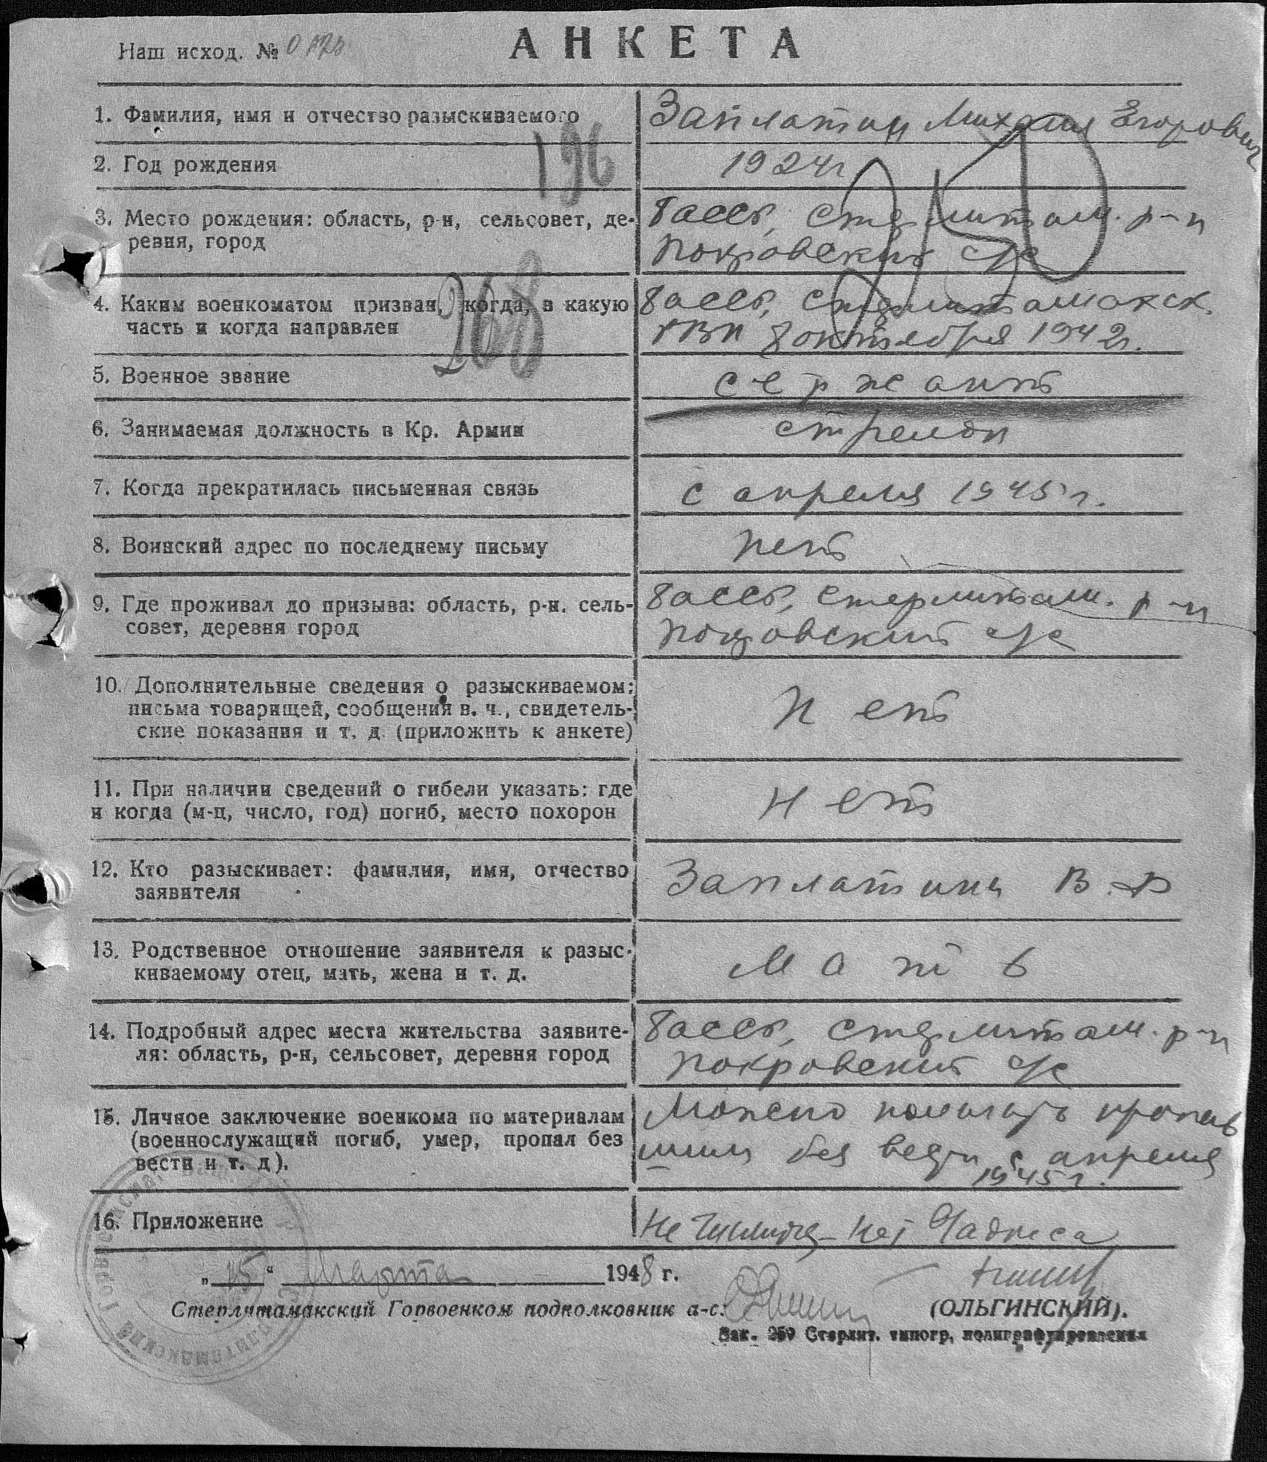 Наш исход. №
АНКЕТА
1. Фамилия, имя и отчество разыскиваемого
Заплатин Михаил Егорович
196
2. Год рождения
1924г
3. Место рождения: область, р-н, сельсовет, де-
ревня, город
БАССР, Стерлитам. р-н
Покровский с/с
4. Каким военкоматом призван, когда, в какую
часть и когда направлен
БАССР, Стерлитамакск.
РВК 8 октября 1942г.
268
5. Военное звание
сержант
6. Занимаемая должность в Кр. Армии
стрелок
7. Когда прекратилась письменная связь
с апреля 1945 г.
8. Воинский адрес по последнему письму
нет
9. Где проживал до призыва: область, р-н. сель-
совет, деревня город
БАССР, Стерлитам. р-н
Покровский с/с
10. Дополнительные сведения о разыскиваемом:
письма товарищей, сообщения в. ч., свидетель-
ские показания и т. д. (приложить к анкете)
нет
11. При наличии сведений о гибели указать: где
и когда (м-ц, число, год) погиб, место похорон
нет
12. Кто разыскивает: фамилия, имя, отчество
заявителя
Заплатина В. Ф
13. Родственное отношение заявителя к разыс-
киваемому отец, мать, жена и т. д.
мать
14. Подробный адрес места жительства заявите-
ля: область, р-н, сельсовет, деревня город
БАССР, Стерлитам. р-н
Покровский с/с
15. Личное заключение военкома по материалам
(военнослужащий погиб, умер, пропал без
вести и т. д).
Можно полагать пропав
шим без вести с апреля
1945г.
16. Приложение
Не числится - нет адреса
„15“ Марта 1948 г.
Стерлитамакский Горвоенком подполковник а-с: (ОЛЬГИНСКИЙ).
Зак. 259 Стерлит. типогр, полиграфуправления